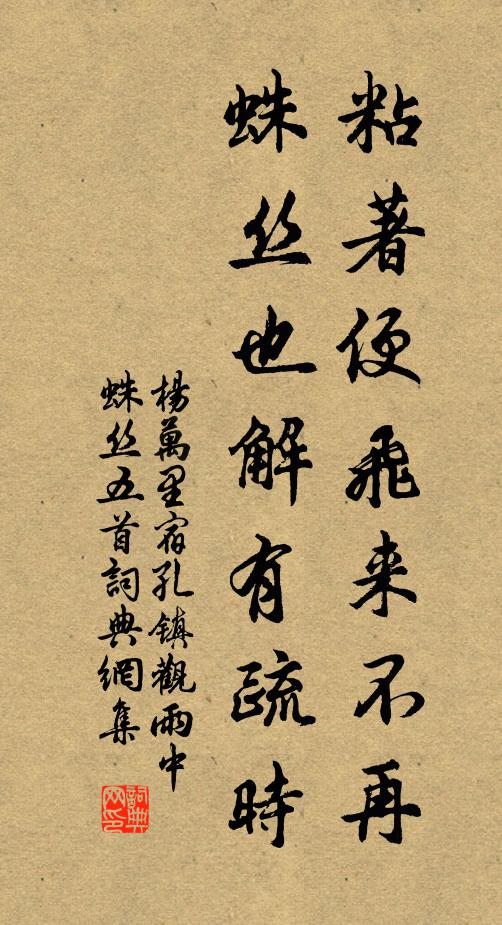 粘著便飛来不再
蛛丝也解有疏時
楊萬里宿孔鎮觀雨中
蛛丝五首詞典網集
詞典
网印